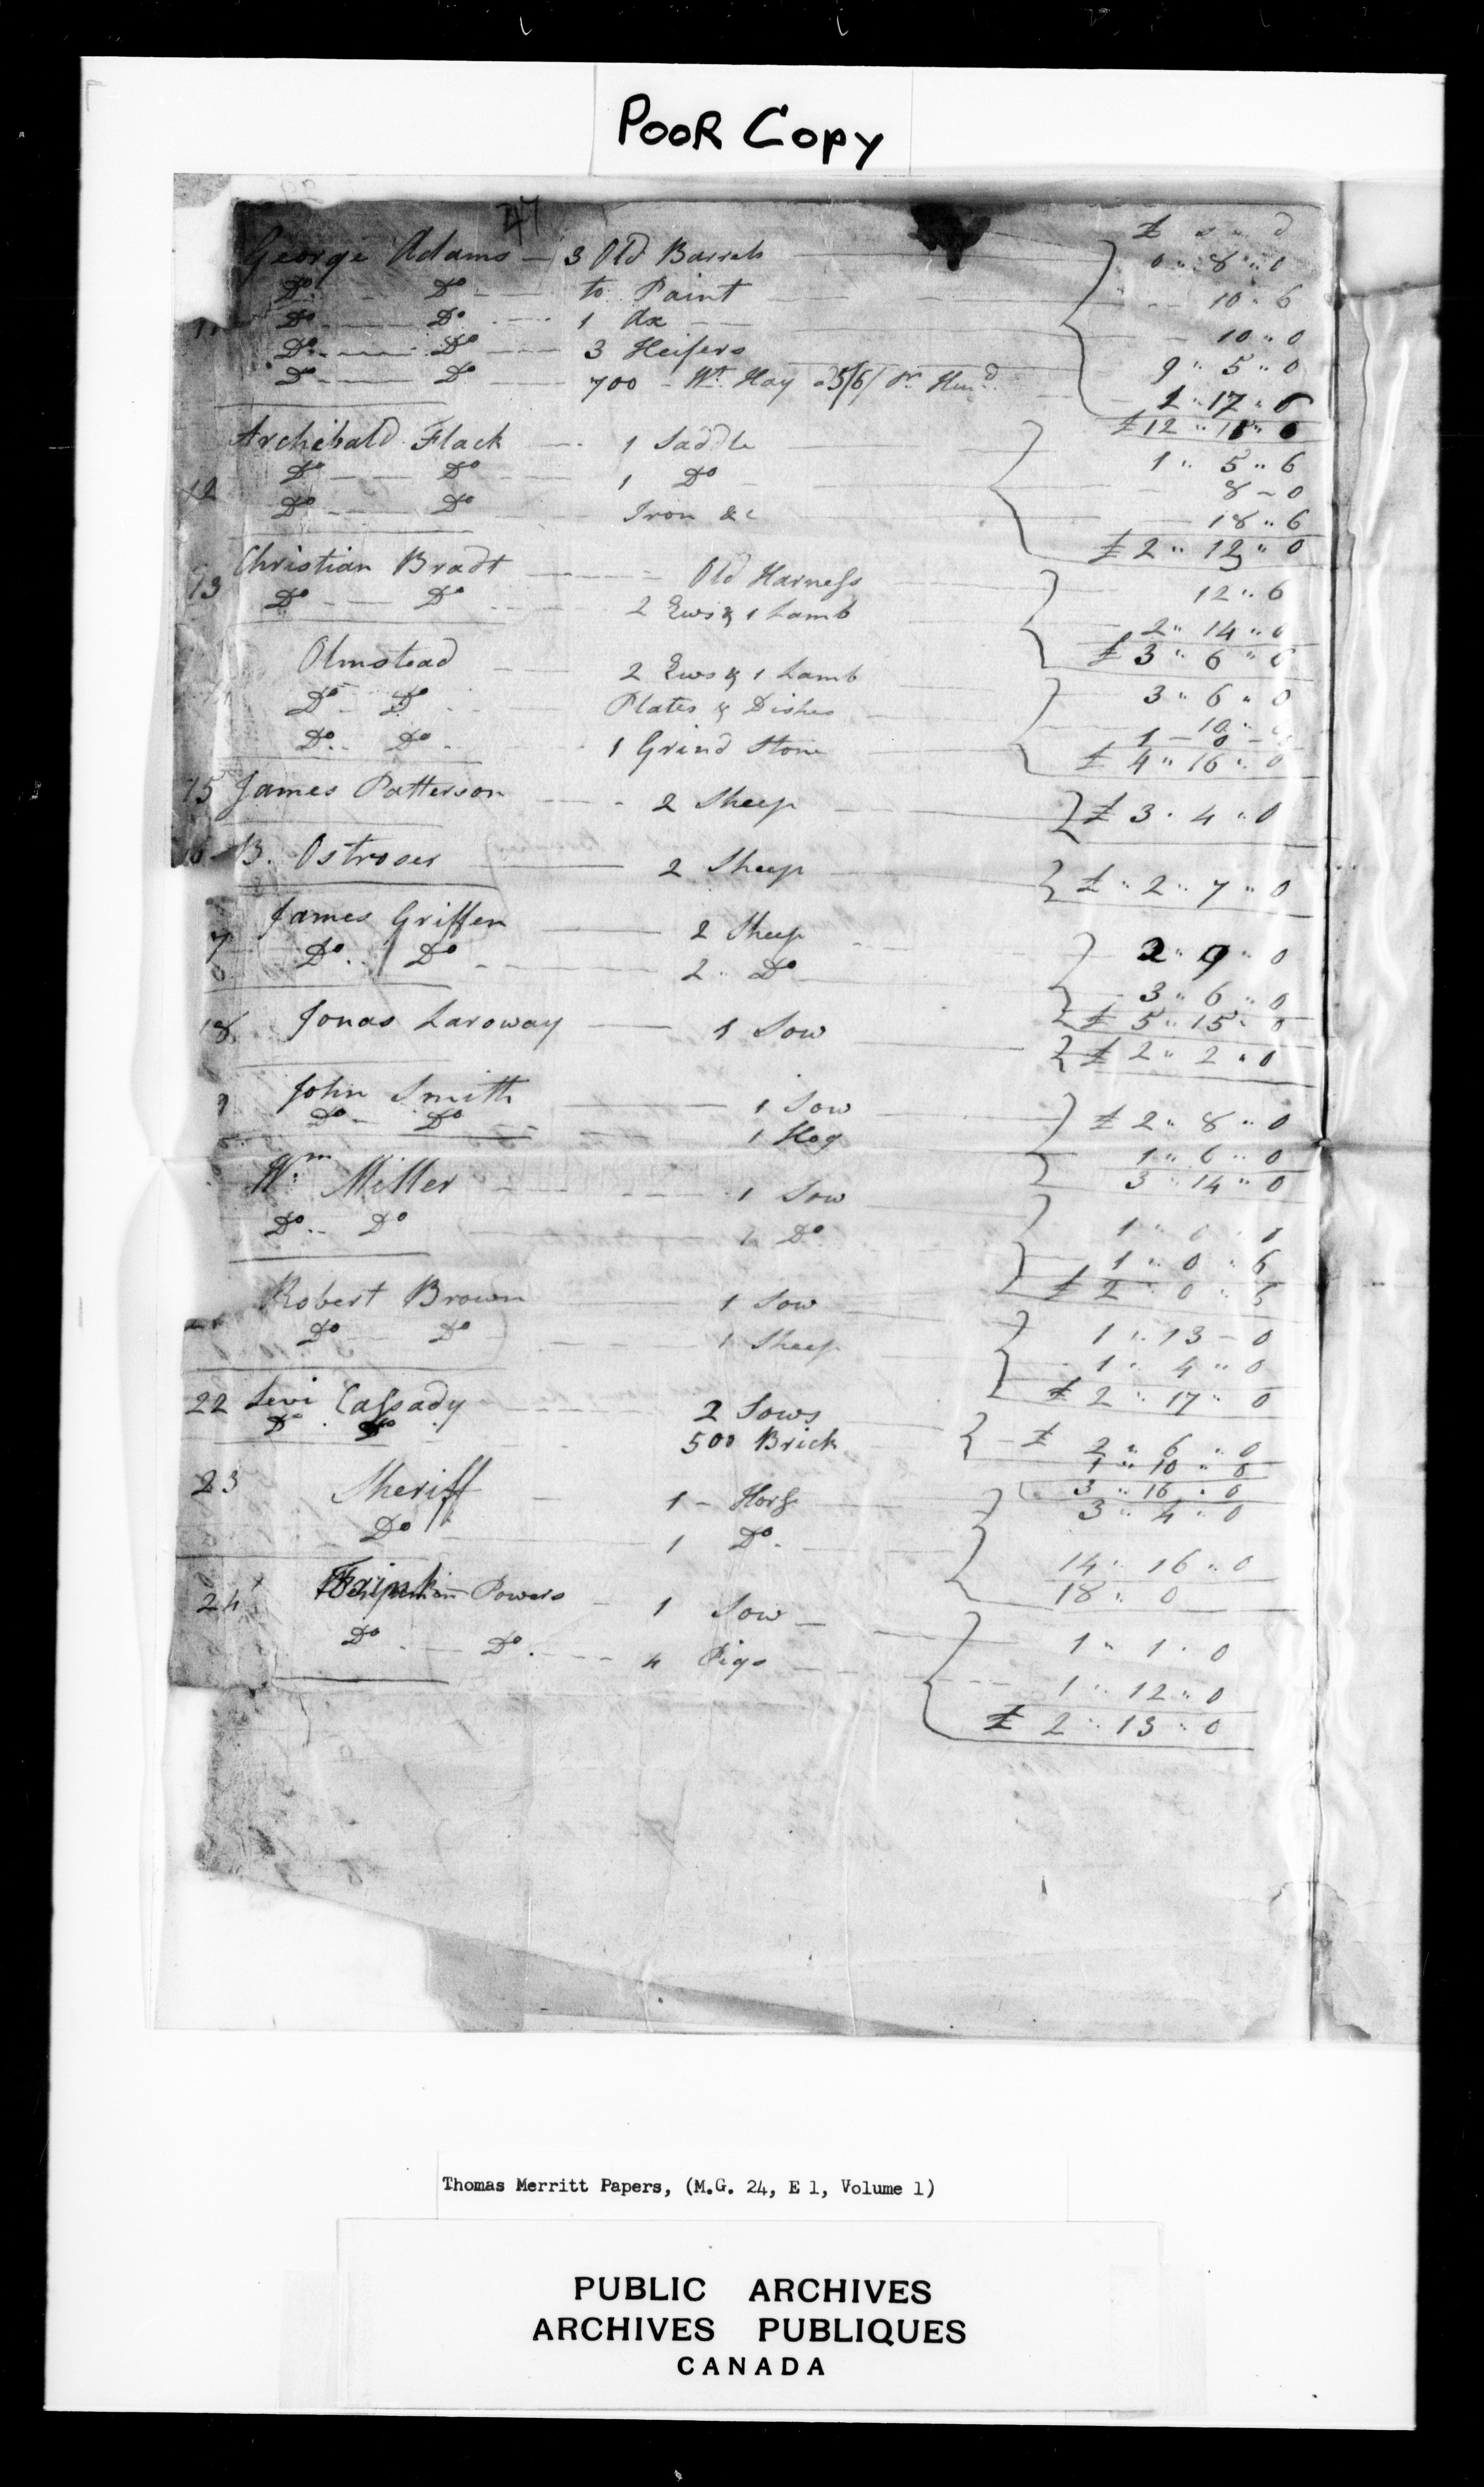 POOR COPY
47
£ s d
George Adams — 3 Old Barrels 0 " 8 " 0
Do. Do to Paint 10 " 6
11 Do. Do 1 Ax 10 " 0
Do. Do 3 Heifers 9 " 5 " 0
Do Do 700 - Wt. Hay 17
£12
Archibald Flack 1 Saddle 1 " 5 " 6
12 Do Do 1 Do 8 - 0
Do. Do Iron &c 18 " 6
£ 2 " 12 " 0
13 Christian Bradt Old Harness 12 " 6
Do Do 2 Ews & 1 Lamb 2 " 14 " 0
£ 3 " 6 " 6
Olmstead 2 Ews & 1 Lamb 3 " 6 " 0
Do Do Plates & Dishes 10
Do. Do. 1 Grind Stone 1 - 0
£ 4 " 16 " 0
15 James Patterson 2 Sheep £ 3 " 4 " 0
16 B. Ostroser 2 Sheep £ " 2 " 7 " 0
7 James Griffen 2 Sheep 2 " 9 " 0
Do. Do 2 " Do 3 " 6 " 0
£ 5 " 15 " 0
18 Jonas Laroway 1 Sow £ 2 " 2 " 0
9 John Smith 1 Sow £ 2 " 8 " 0
Do Do 1 Hog 1 " 6 " 0
3 " 14 " 0
Wm Miller 1 Sow 1 " 0
Do.. Do 1 Do 1 " 0 " 6
£ 2 " 0 " 6
Robert Brown 1 Sow 1 " 13 - 0
Do Do 1 Sheep 1 " 4 " 0
£ 2 " 17 " 0
22 Levi Cassady 2 Sows £ 2 " 6 " 0
Do. Do 500 Brick 1 " 10 " 0
3 " 16 " 0
23 Sheriff 1 - Horse 3 " 4 " 0
Do 1 Do. 14 " 16 " 0
18 " 0
24 Powers 1 Sow 1 " 1 " 0
Do Do. 4 Pigs 1 " 12 " 0
£ 2 " 13 " 0
Thomas Merritt Papers, (M.G. 24, E 1, Volume 1)
PUBLIC ARCHIVES
ARCHIVES PUBLIQUES
CANADA